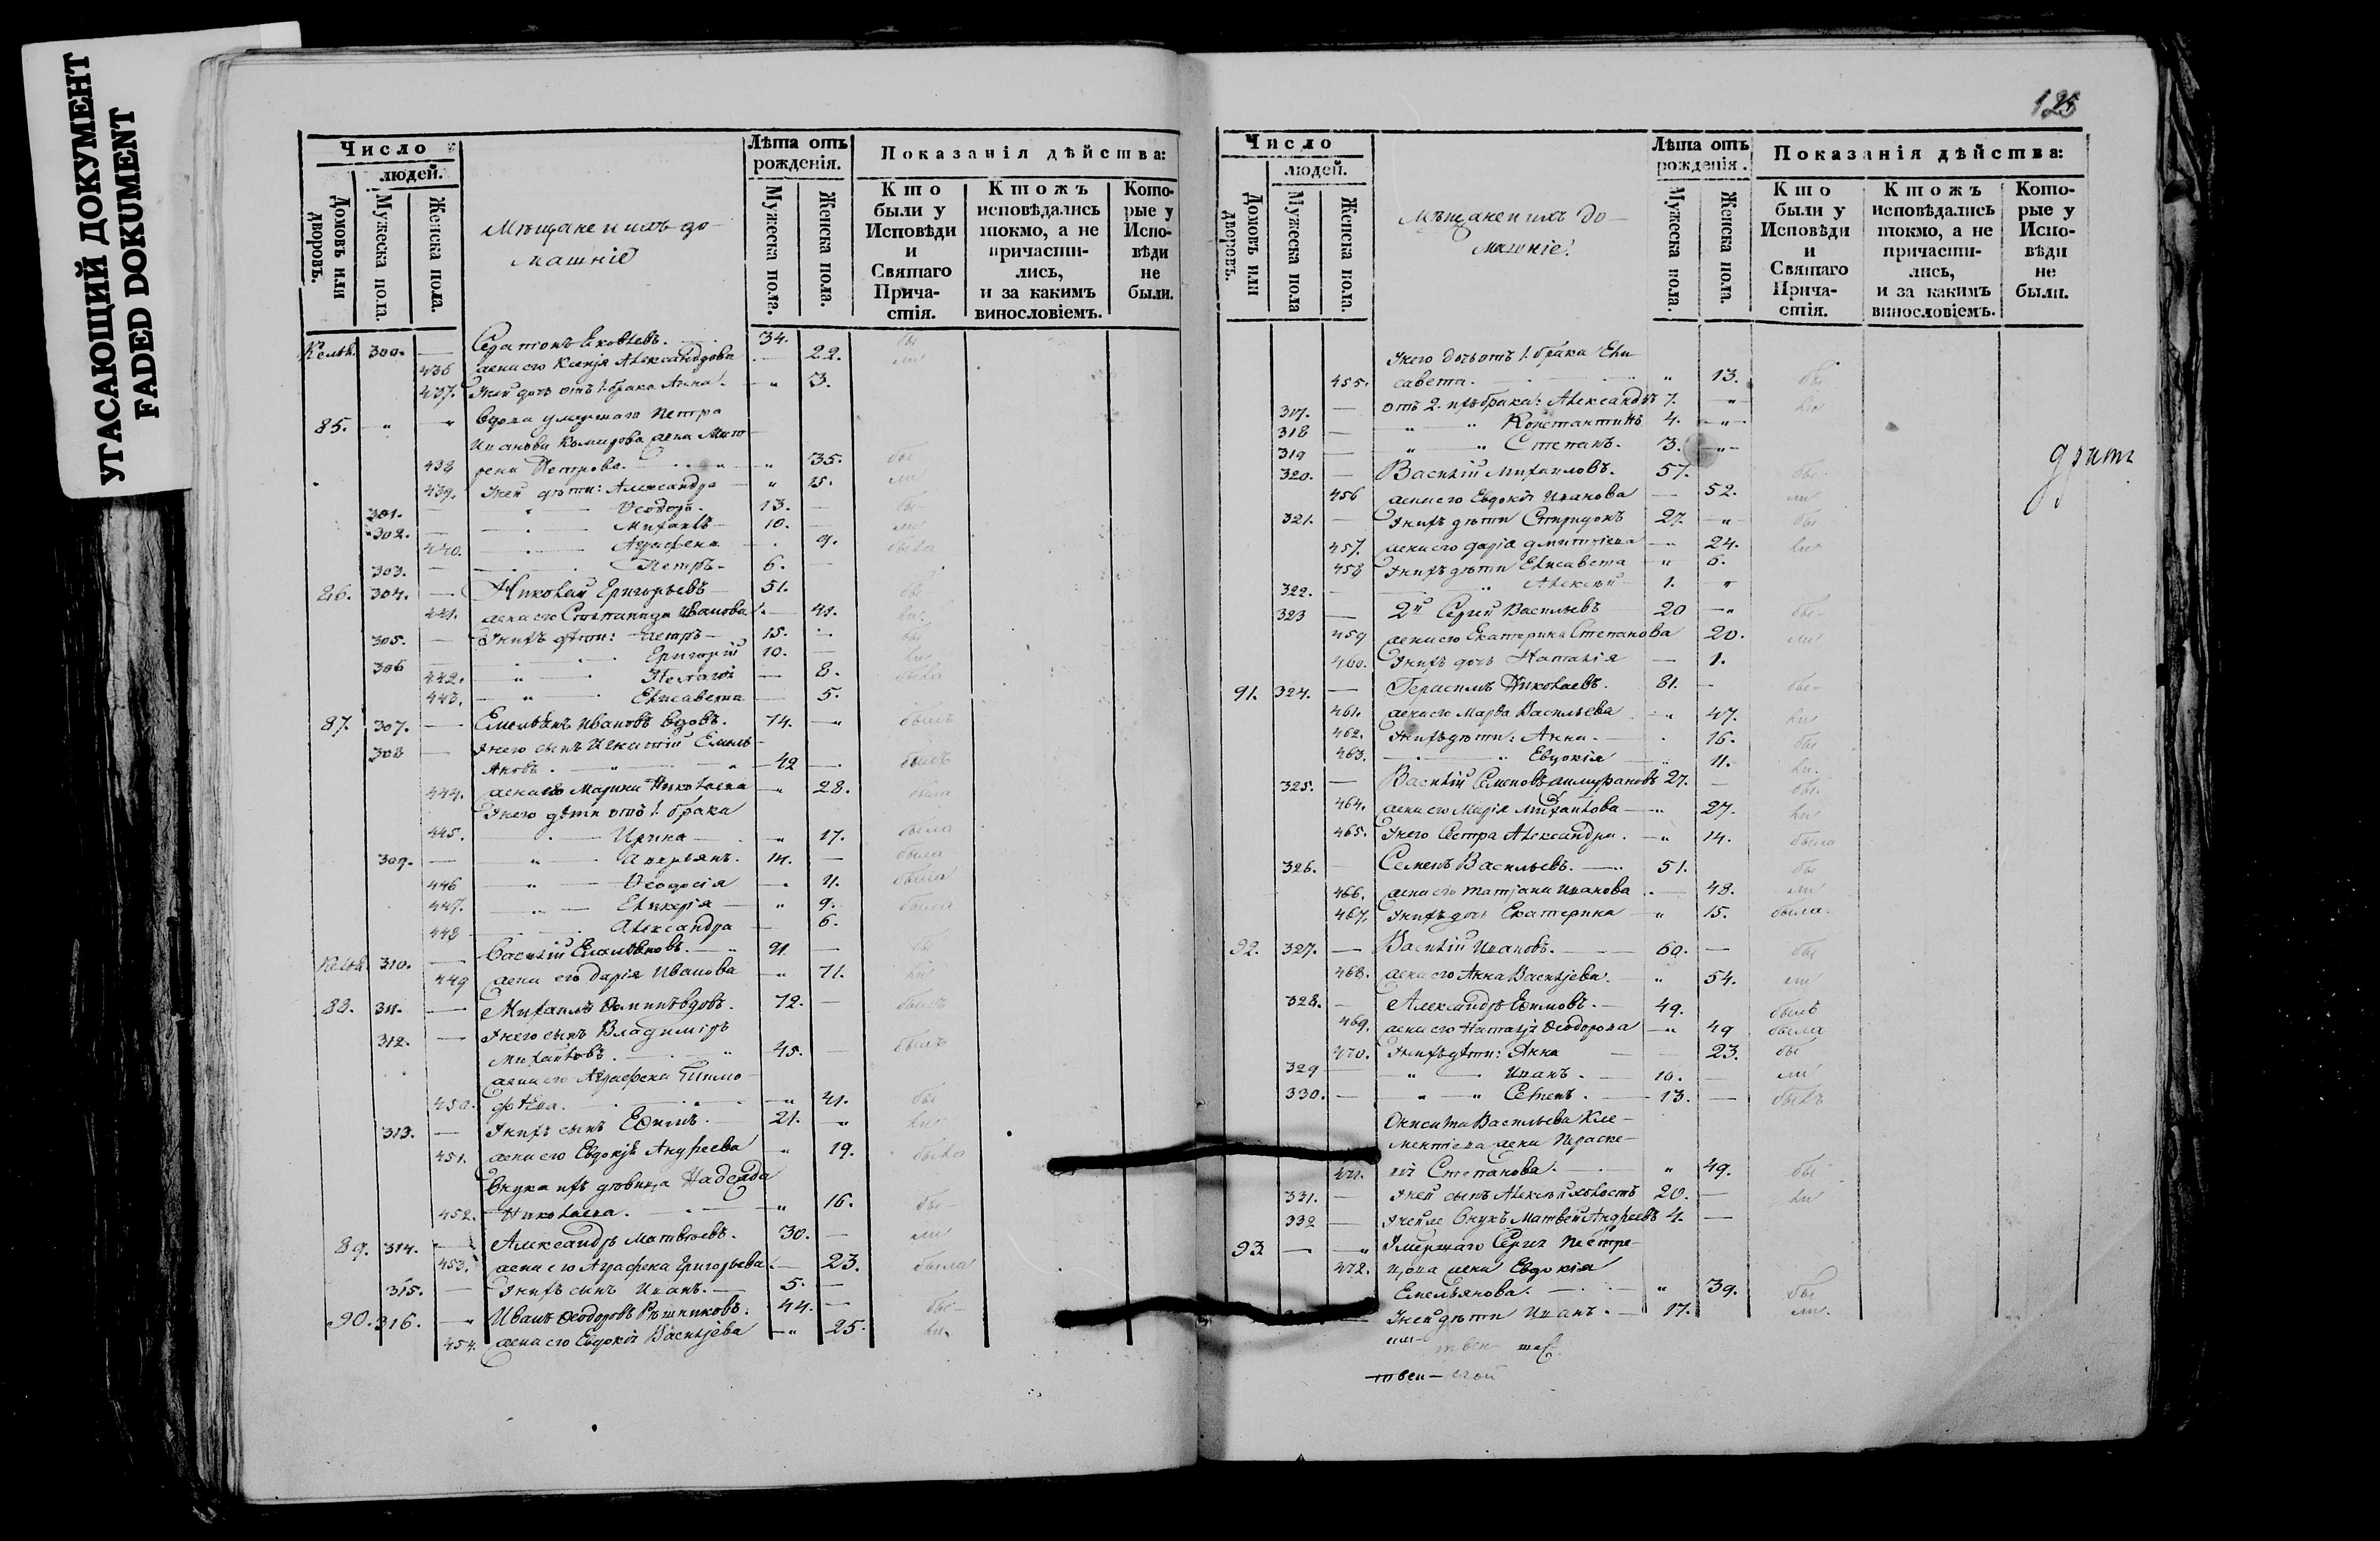 УГАСАЮЩИЙ ДОКУМЕНТ
FADED DOKUMENT
Число
людей.
Домовъ или дворовъ.
Мужеска пола.
Женска пола.
Мѣщане и ихъ до-
машніе
Лѣта отъ рожденія.
Мужеска пола.
Женска пола.
Показанія дѣйства:
Кто были у Исповѣди и Святаго Прича-стія.
Ктожъ исповѣдались токмо, а не причасти-лись, и за какимъ винословіемъ.
Кото-рые у Испо-вѣди не были.
300. — Яковлевъ. 34. бы
436 жена его Ксенія Александрова 22. ли
437. У ней дочь отъ 1. брака Анна. " 3.
85. " " Вдова умершаго Петра
Иванова жена Мат-
438 рена Петрова. " 35. бы
439. У ней дѣти: Александра " 15. ли
301. — Ѳеодоръ. 13. — бы
302. — Михаилъ 10. — ли
440. Аграфена 9. была
303. — Петръ 6. —
86. 304. — Николай Григорьевъ 51. бы
441. жена его Степанида Иванова 41. ли
305. — У нихъ дѣти: Петръ 15. — бы
306 — Григорій 10. — ли
442. " Пелагія — 8. была
443. " Елисавета — 5.
87. 307. — Емельянъ Ивановъ вдовъ. 74. — былъ
308 — У него сынъ Игнатій Емель-
яновъ. 42 — былъ
444. жена его Марина Николаева " 28. была
У него дѣти отъ 1. брака
445. Ирина " 17. была
309. — " Аверьянъ. 14. —
446 " Ѳеодосія 11. была
447. Гликерія " 9. была
448 Александра 6.
310. — Василій Емельяновъ. 91 — бы
449 жена его Дарія Иванова " 71. ли
88. 311. — Михаилъ Ѳоминъ вдовъ. 72. — былъ
312. — У него сынъ Владиміръ
Михайловъ. 45. — былъ
жена его Аграфена Тимо-
450. фѣева. " 41. бы
313. — У нихъ сынъ Ефимъ. 21. " ли
451. жена его Евдокія Андреева " 19. была
Внука ихъ дѣвица Надежда
452. Николаева. " 16. бы
89. 314. — Александръ Матвѣевъ. 30. — ли
453. жена его Аграфена Григорьева 23. была
315. — У нихъ сынъ Иванъ. 5. —
90. 316. — Иванъ Ѳеодоровъ Рѣшниковъ. 44. — бы
454. жена его Евдокія Васильева " 25. ли
125
Число
людей.
Домовъ или дворовъ.
Мужеска пола
Женска пола.
Мѣщане и ихъ до-
машніе.
Лѣта отъ рожденія.
Мужеска пола.
Женска пола.
Показанія дѣйства:
Кто были у Исповѣди и Святаго Прича-стія.
Ктожъ исповѣдались токмо, а не причасти-лись, и за какимъ винословіемъ.
Кото-рые у Испо-вѣди не были.
У него дочь отъ 1. брака Ели-
455. савета. " 13. бы
317. — отъ 2. го брака: Александръ 7. " ли
318 — " " Константинъ 4. "
319 — " Степанъ. 3. "
320. — Василій Михаиловъ. 57. бы
456 жена его Евдокія Иванова — 52. ли
321. — У нихъ дѣти Спиридонъ 27. " бы
457. жена его Дарія Дмитріева " 24. ли
458 У нихъ дѣти Елисавета " 6.
322. — " Алексѣй 1. "
323 — 2й Сергій Васильевъ 20 " бы
459 жена его Екатерина Степанова 20. ли
460. У нихъ дочь Наталія — 1.
91. 324. — Герасимъ Николаевъ. 81. — бы
461. жена его Марѳа Васильева " 47. ли
462. У нихъ дѣти: Анна. 16. бы
463. " Евдокія 11. ли
325. — Василій Семеновъ 27. — бы
464. жена его Марія Михайлова " 27. ли
465. У него Сестра Александра. " 14. была
326. — Семенъ Васильевъ. 51. бы
466. жена его Татіана Иванова — 48. ли
467. У нихъ дочь Екатерина " 15. была
92. 327. — Василій Ивановъ. 60. — бы
468. жена его Анна Васильева. " 54. ли
328. — Александръ Ефимовъ. 49. былъ
469. жена его Наталія Ѳеодорова " 49 была
470. У нихъ дѣти: Анна — 23. бы
329 — " Иванъ. 10. — ли
330. — " Семенъ. 13. — былъ
Васильева Кле-
ментіева жена Параске-
471. вія Степанова. " 49. бы
331. — У ней сынъ Алексѣй холостъ 20. — ли
332 — У ней же Внукъ Матвей Андреевъ 4. —
93 — " Умершаго Сергія Петро-
472. жена Евдокія
Емельянова. " 39. бы
У ней дѣти Иванъ. 17. ли.